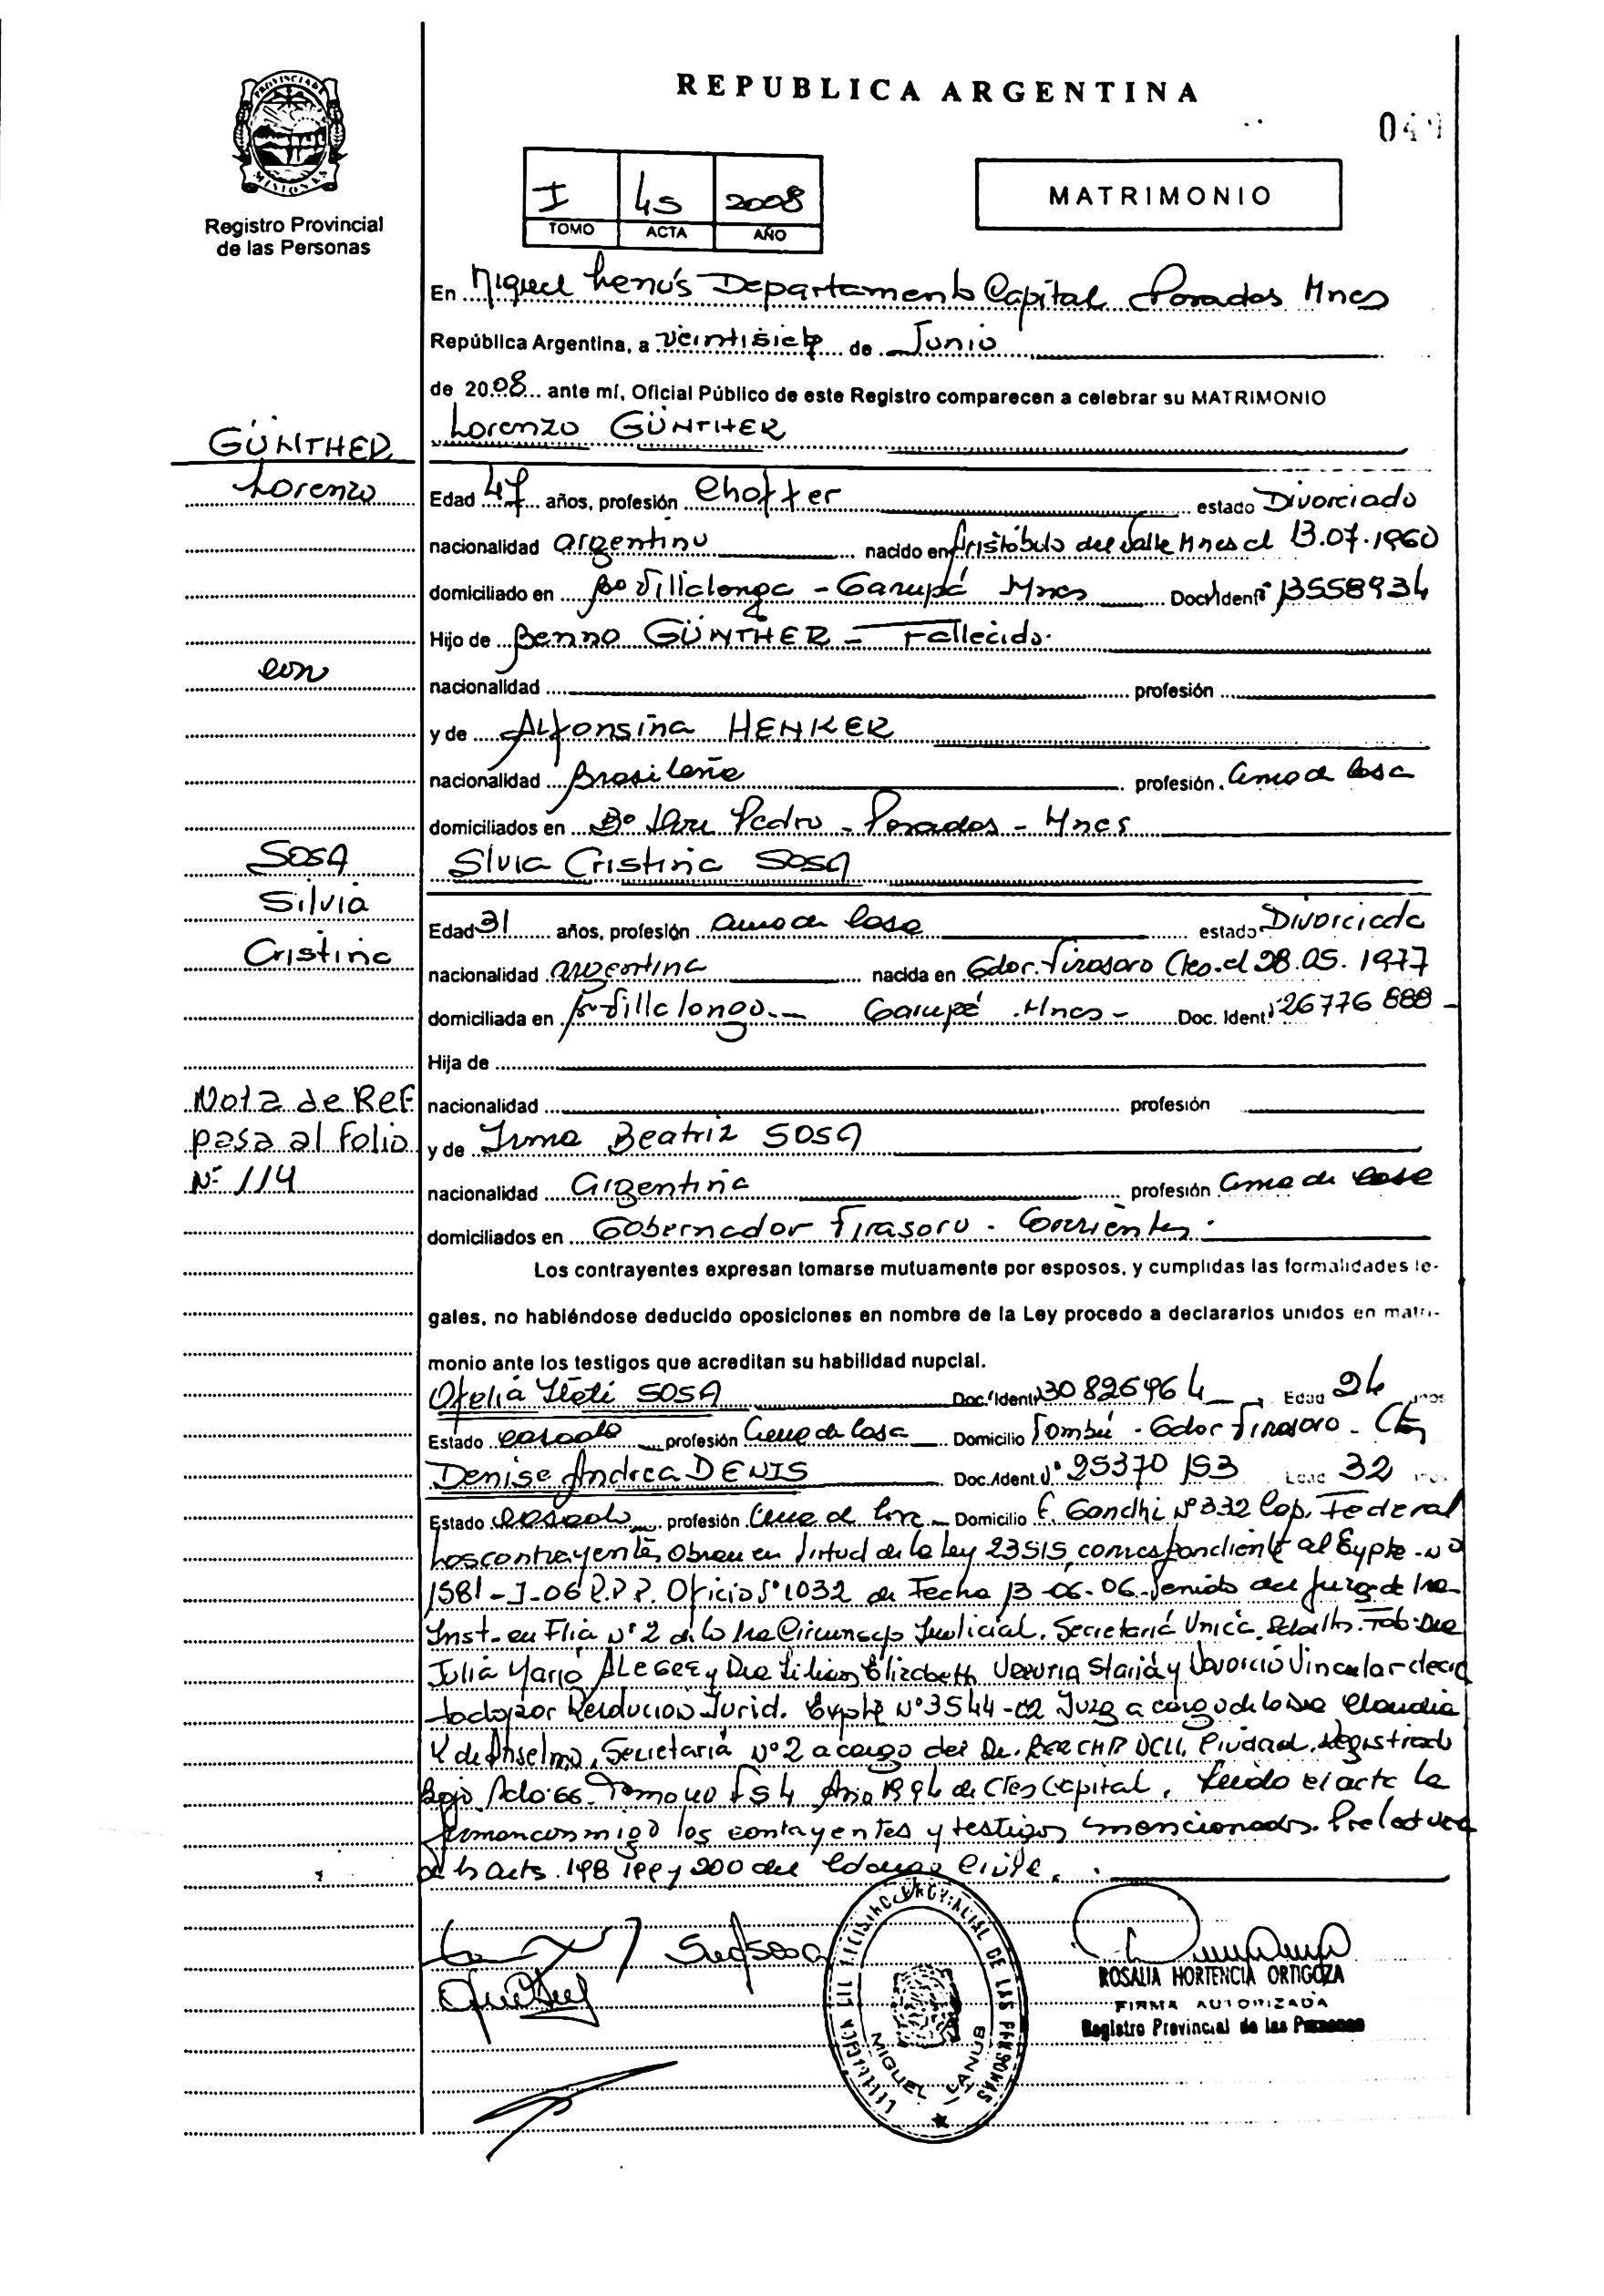 REPUBLICA ARGENTINA
PROVINCIA DE
MISIONES
Registro Provincial
de las Personas
I 45 2008
TOMO ACTA AÑO
MATRIMONIO
En Miguel Lanús Departamento Capital Posadas Mnes
República Argentina, a veintisiete de Junio
de 2008 ante mí, Oficial Público de este Registro comparecen a celebrar su MATRIMONIO
GÜNTHER
Lorenzo
con
SOSA
Silvia
Cristina
Nota de Ref
pasa al Folio
Nº 114
Lorenzo GÜNTHER
Edad 47 años, profesión Choffer estado Divorciado
nacionalidad argentino nacido en Aristóbulo del Valle Mnes el 13.07.1960
domiciliado en Bº Villalonga - Garupá Mnes Doc. Ident. 13558934
Hijo de Benno GÜNTHER - Fallecido.
nacionalidad profesión
y de Alfonsina HENKER
nacionalidad Brasileña profesión ama de casa
domiciliados en Bº San Pedro - Posadas - Mnes
Silvia Cristina SOSA
Edad 31 años, profesión ama de casa estado Divorciada
nacionalidad argentina nacida en Gdor. Virasoro Ctes. el 28.05.1977
domiciliada en Bº Villalonga - Garupá Mnes - Doc. Ident. 26776888 -
Hija de
nacionalidad profesión
y de Irma Beatriz SOSA
nacionalidad argentina profesión ama de casa
domiciliados en Gobernador Virasoro - Corrientes.
Los contrayentes expresan tomarse mutuamente por esposos, y cumplidas las formalidades le-
gales, no habiéndose deducido oposiciones en nombre de la Ley procedo a declararlos unidos en matri-
monio ante los testigos que acreditan su habilidad nupcial.
Ofelia SOSA Doc. Ident. Edad 24 años
Estado casada profesión ama de casa Domicilio Tombú - Gdor Virasoro - Ctes
Denise Andrea DENIS Doc. Ident. Nº 25370153 Edad 32 años
Estado casada profesión ama de casa Domicilio F. Gandhi Nº 332 Cap. Federal
Los contrayentes Obran en virtud de la Ley 23515, correspondiente al Expte. Nº
1581-J-06 R.P.P. Oficio Nº 1032 de Fecha 13-06-06 venido del Juzg. de 1ra
Inst. en Flia Nº 2 de la 1ra Circunscp Judicial, Secretaría Unica,
Julia y Dra Elizabeth y Divorcio Vincular decre
tado por Resolución Jurid. Expte Nº 3544-02 Juzg a cargo de la Dra Claudia
de Anselmo, Secretaría Nº 2 a cargo del Dr. Ciudad, Registrado
Bajo Año 1994 de Ctes Capital, Leído el acta la
firman conmigo los contayentes y testigos mencionados. Prelectura
de ls arts. 198 199 y 200 del Código Civil.
DE LAS PERSONAS
MIGUEL LANUS
ROSALIA HORTENCIA ORTIGOZA
FIRMA AUTORIZADA
Registro Provincial de las Personas